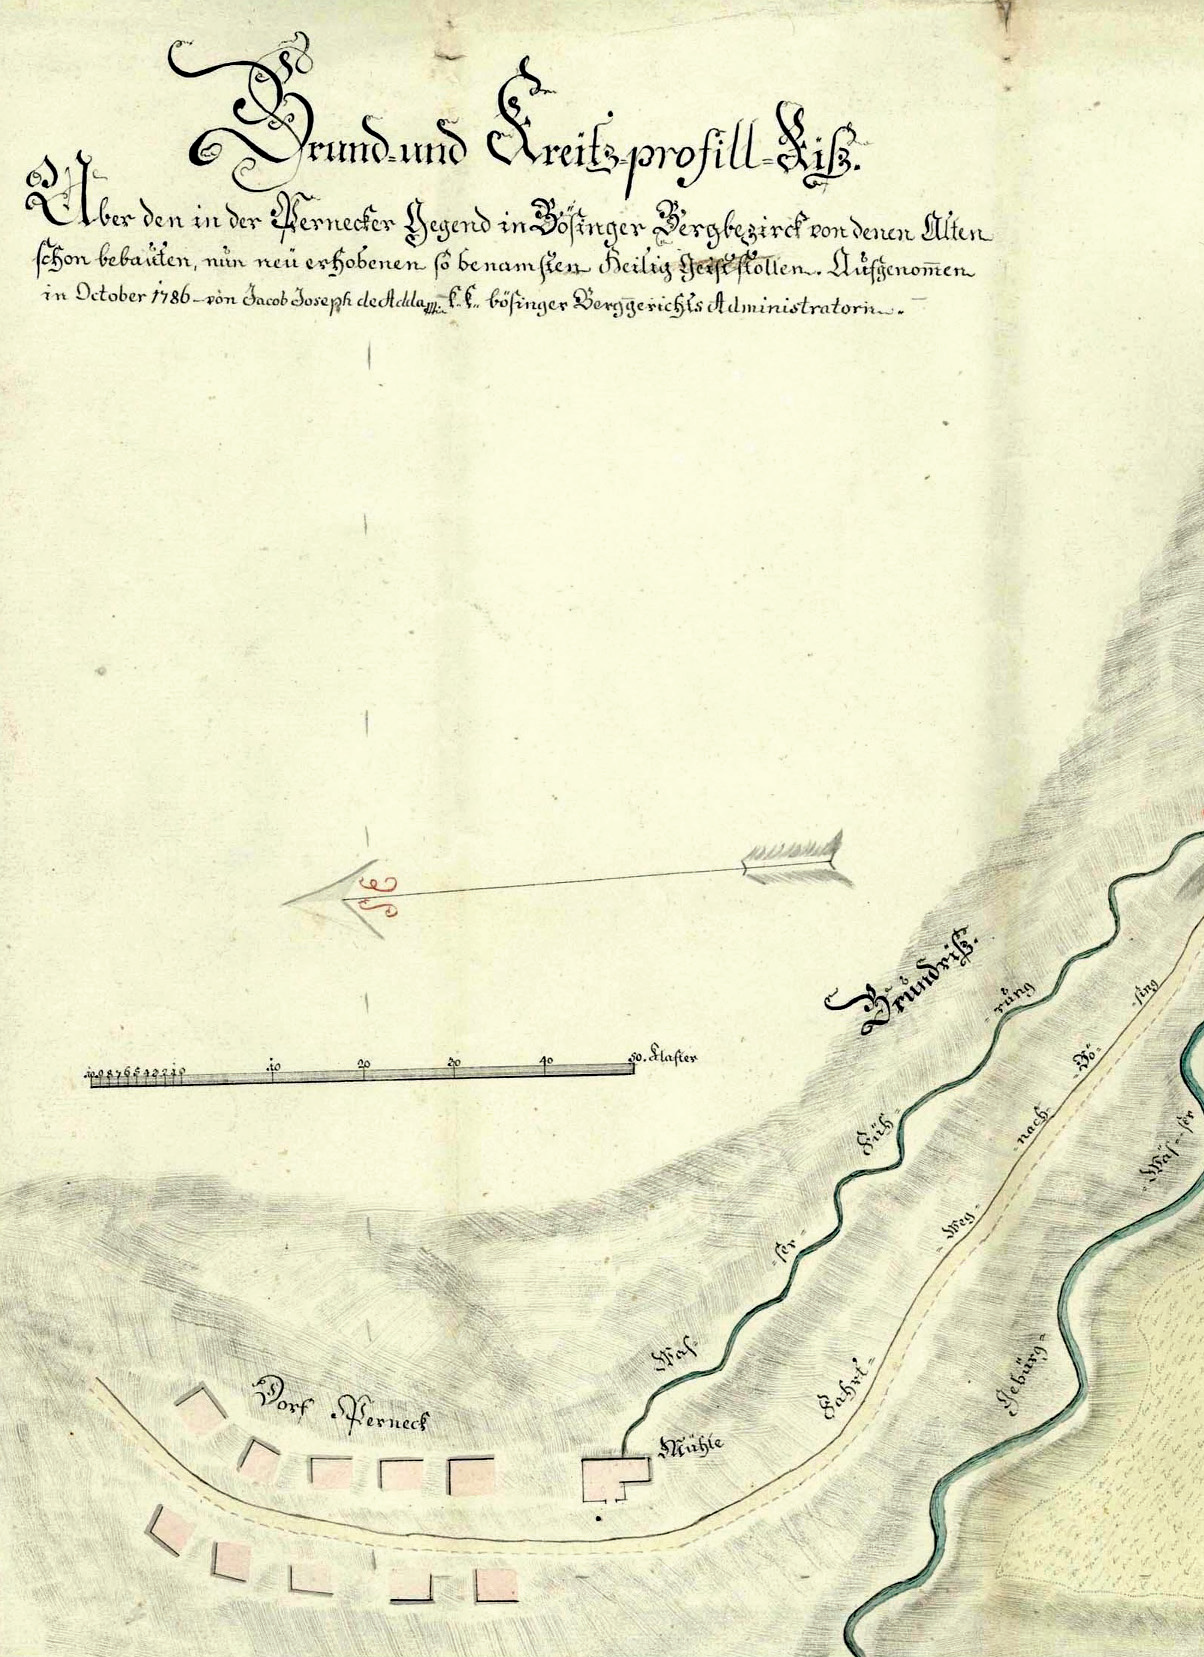 Grund-und Kreitz-profill-Riß.
Über den in der Pernecker Gegend in Bösinger Bergbezirck von denen Alten
schon bebauten, nun neu erhobenen so benamsten Heilig Geist stollen. Aufgenom̅en
in October 1786 von Jacob Joseph de Adda k.k. bösinger Berggerichts Administratorn.
Grundriß.
10 9 8 7 6 5 4 3 2 1 0 10 20 30 40 50. Klafter
Was- -ser- Füh- -rung
Fahrt- -Weg- -nach- Bö- -sing
Gebürg- -Was- -ser
Dorf Perneck
Mühle